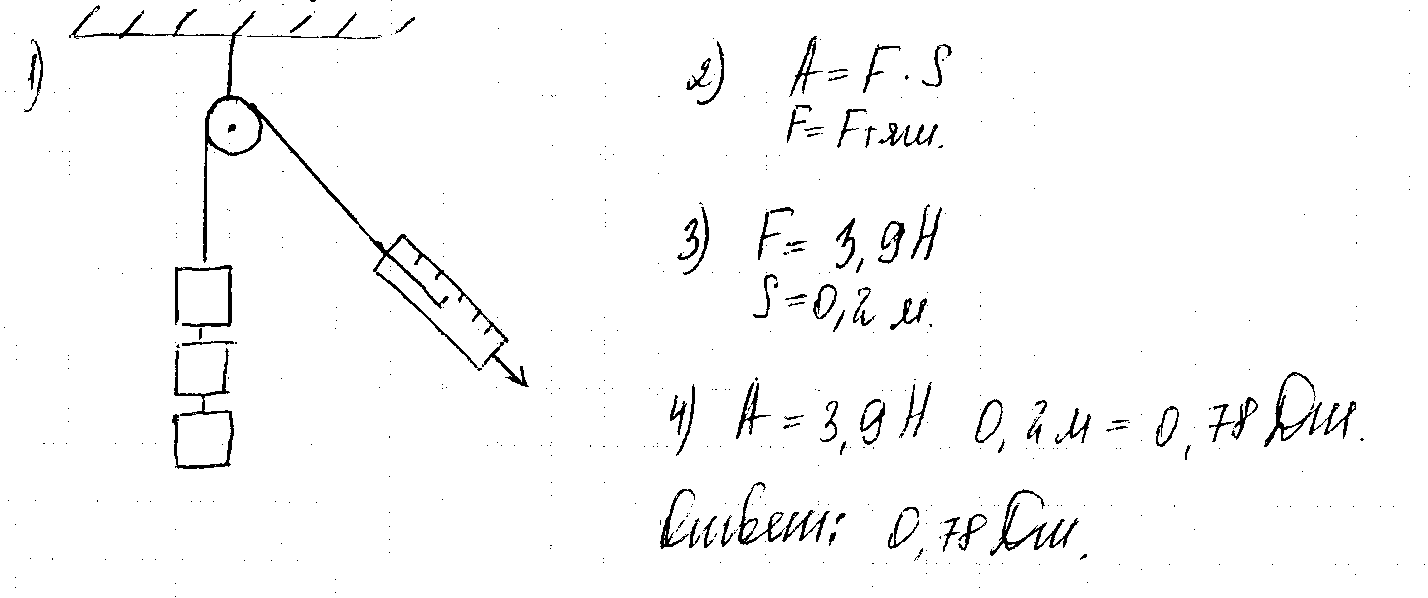 1)
2) A = F · S
F = Fтяж.
3) F = 3,9 Н
S = 0,2 м.
4) A = 3,9 Н 0,2 м = 0,78 Дж.
Ответ: 0,78 Дж.